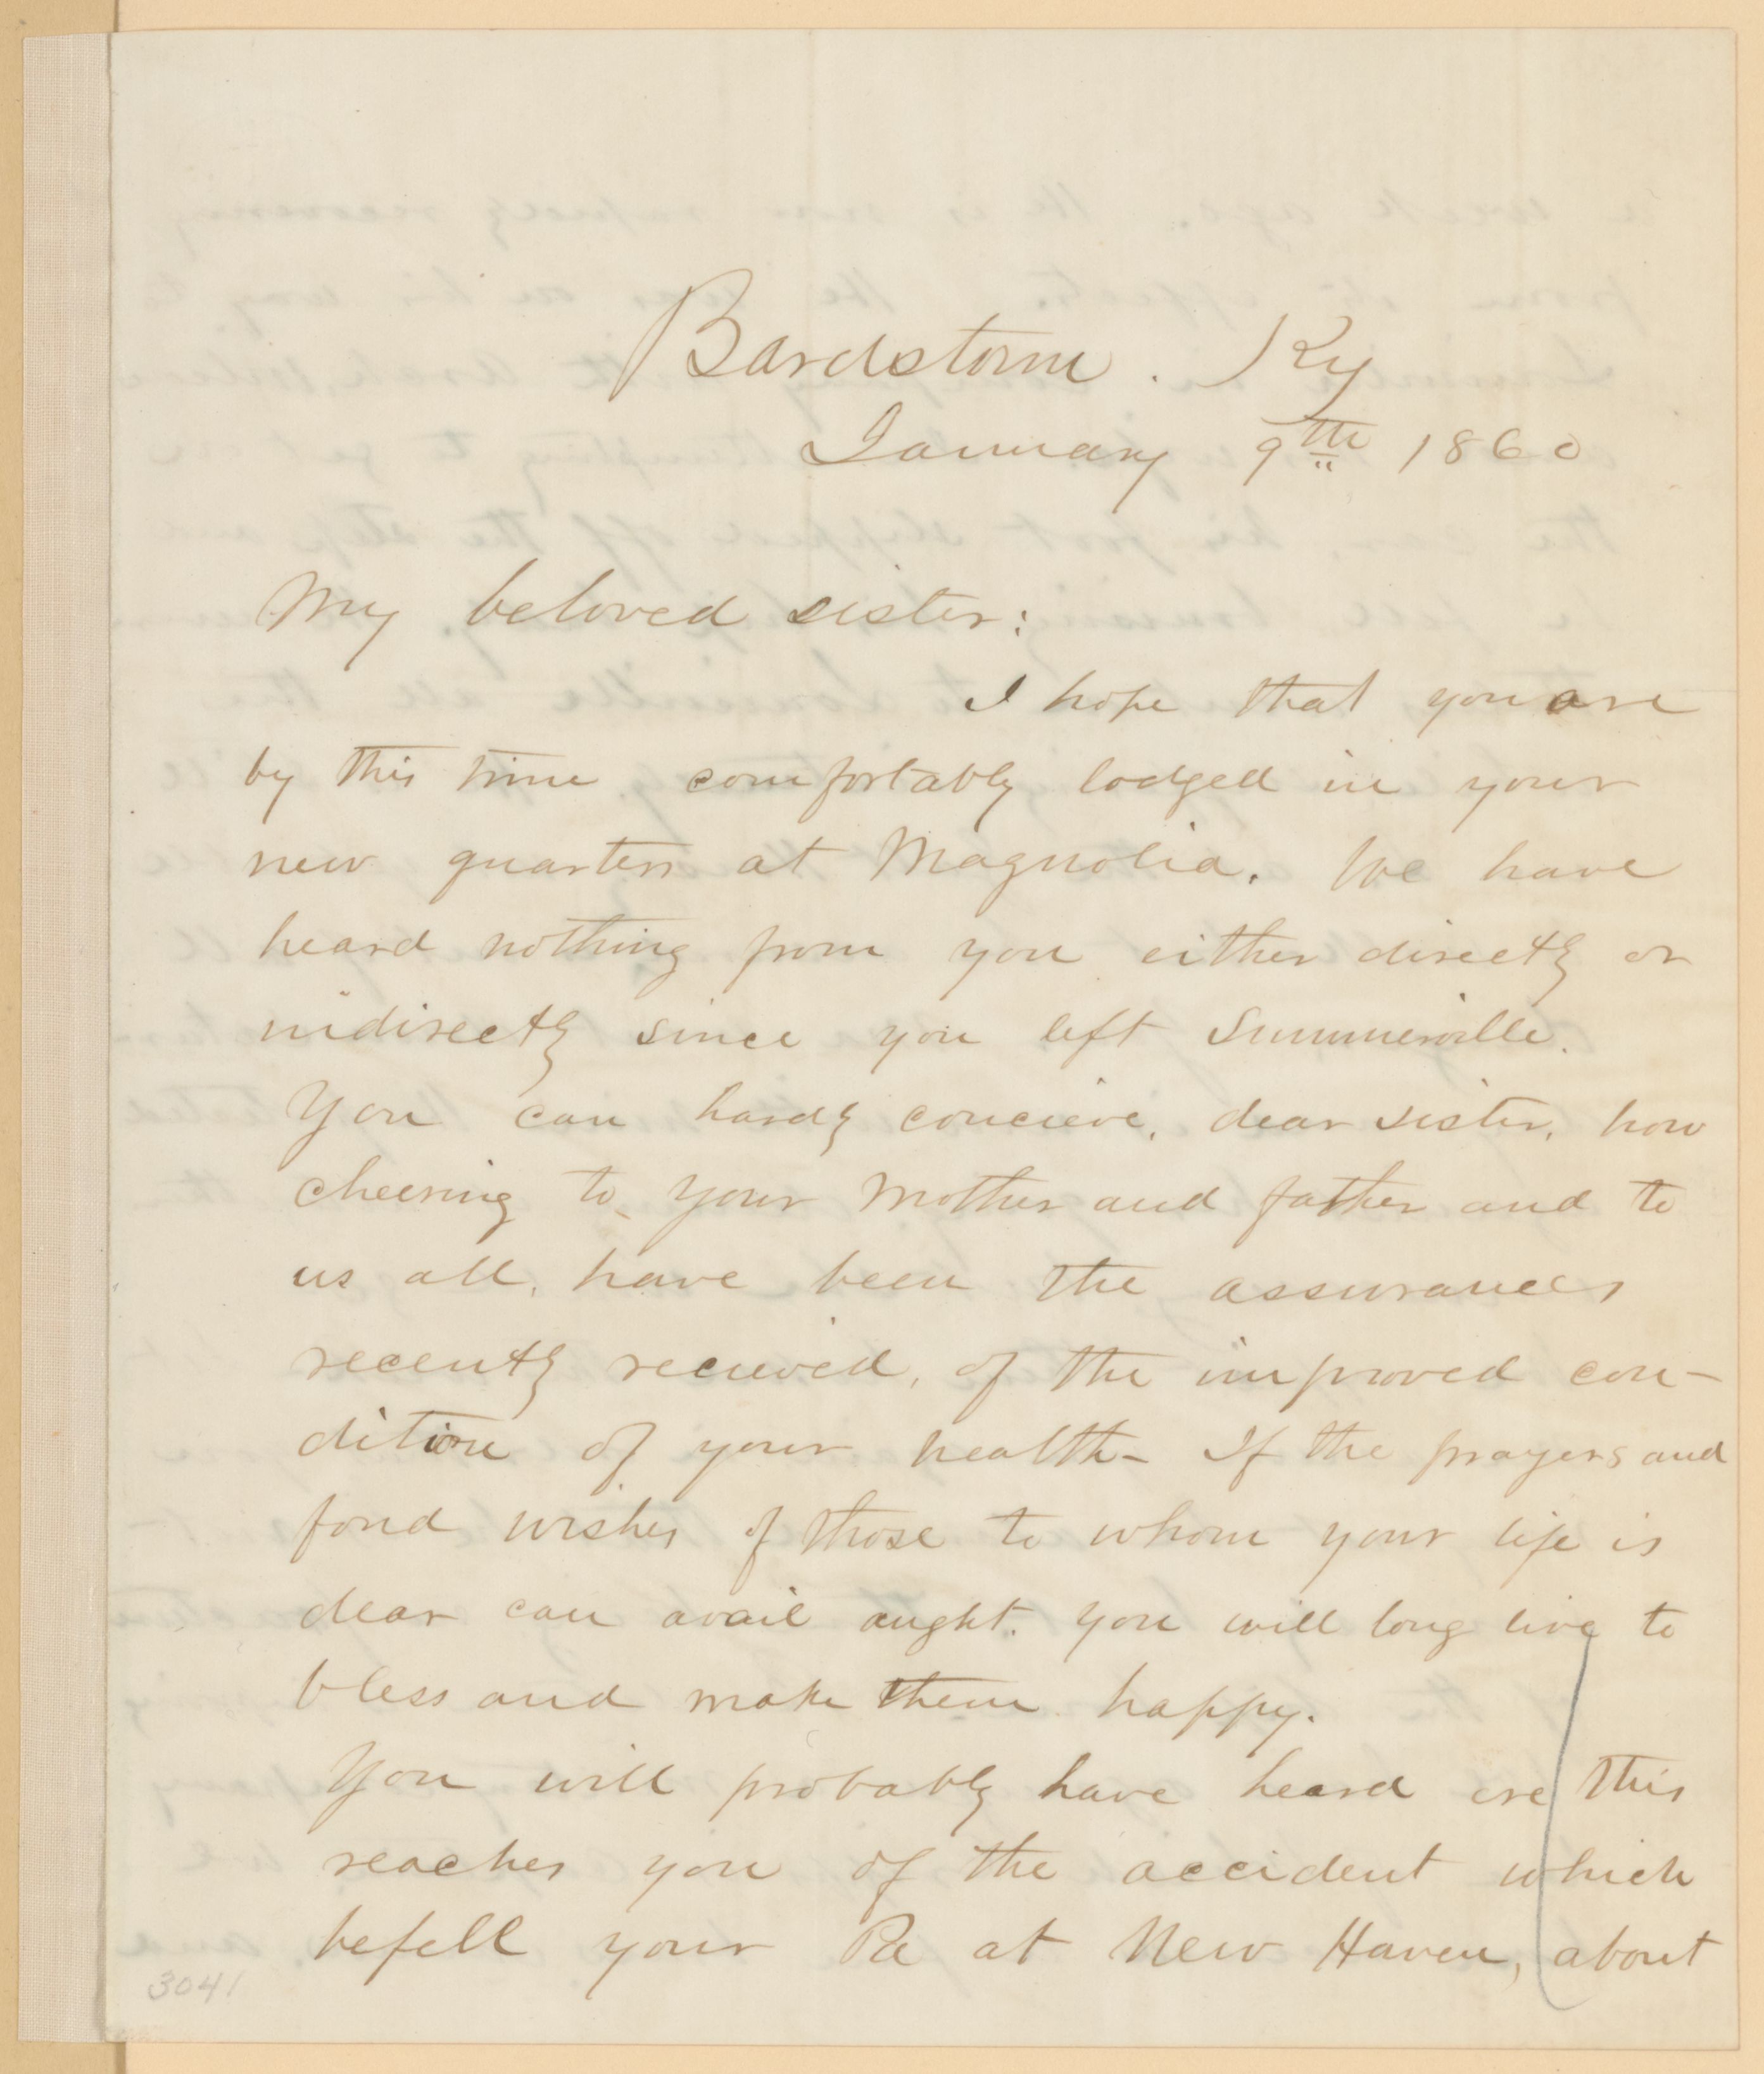 Bardstown. Ky
January 9th 1860
My beloved sister:
I hope that you are
by this time comfortably lodged in your
new quarters at Magnolia. We have
heard nothing from you either directly or
indirectly since you left Summerville.
You can hardly concieve, dear sister, how
cheering to your Mother and father and to
us all, have been the assurances
recently recieved, of the improved con-
dition of your health- If the prayers and
fond wishes of those to whom your life is
dear can avail aught. you will long live to
bless and make them happy.
You will probably have heard ere this
reaches you of the accident which
befell your Pa at New Haven, about
3041